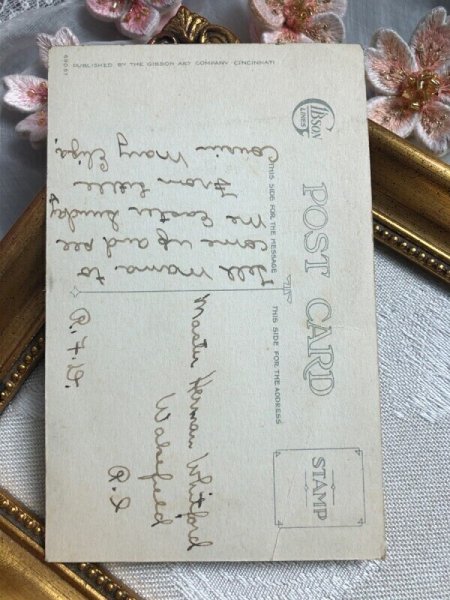 POST CARD
GIBSON
LINES
THIS SIDE FOR THE MESSAGE
THIS SIDE FOR THE ADDRESS
STAMP
Tell Mama to
come up and see
me Easter Sunday
From little
Cousin Mary
Eliza.
Master Herman Whitford
Wakefield
R.I
R.F.D.
PUBLISHED BY THE GIBSON ART COMPANY CINCINNATI